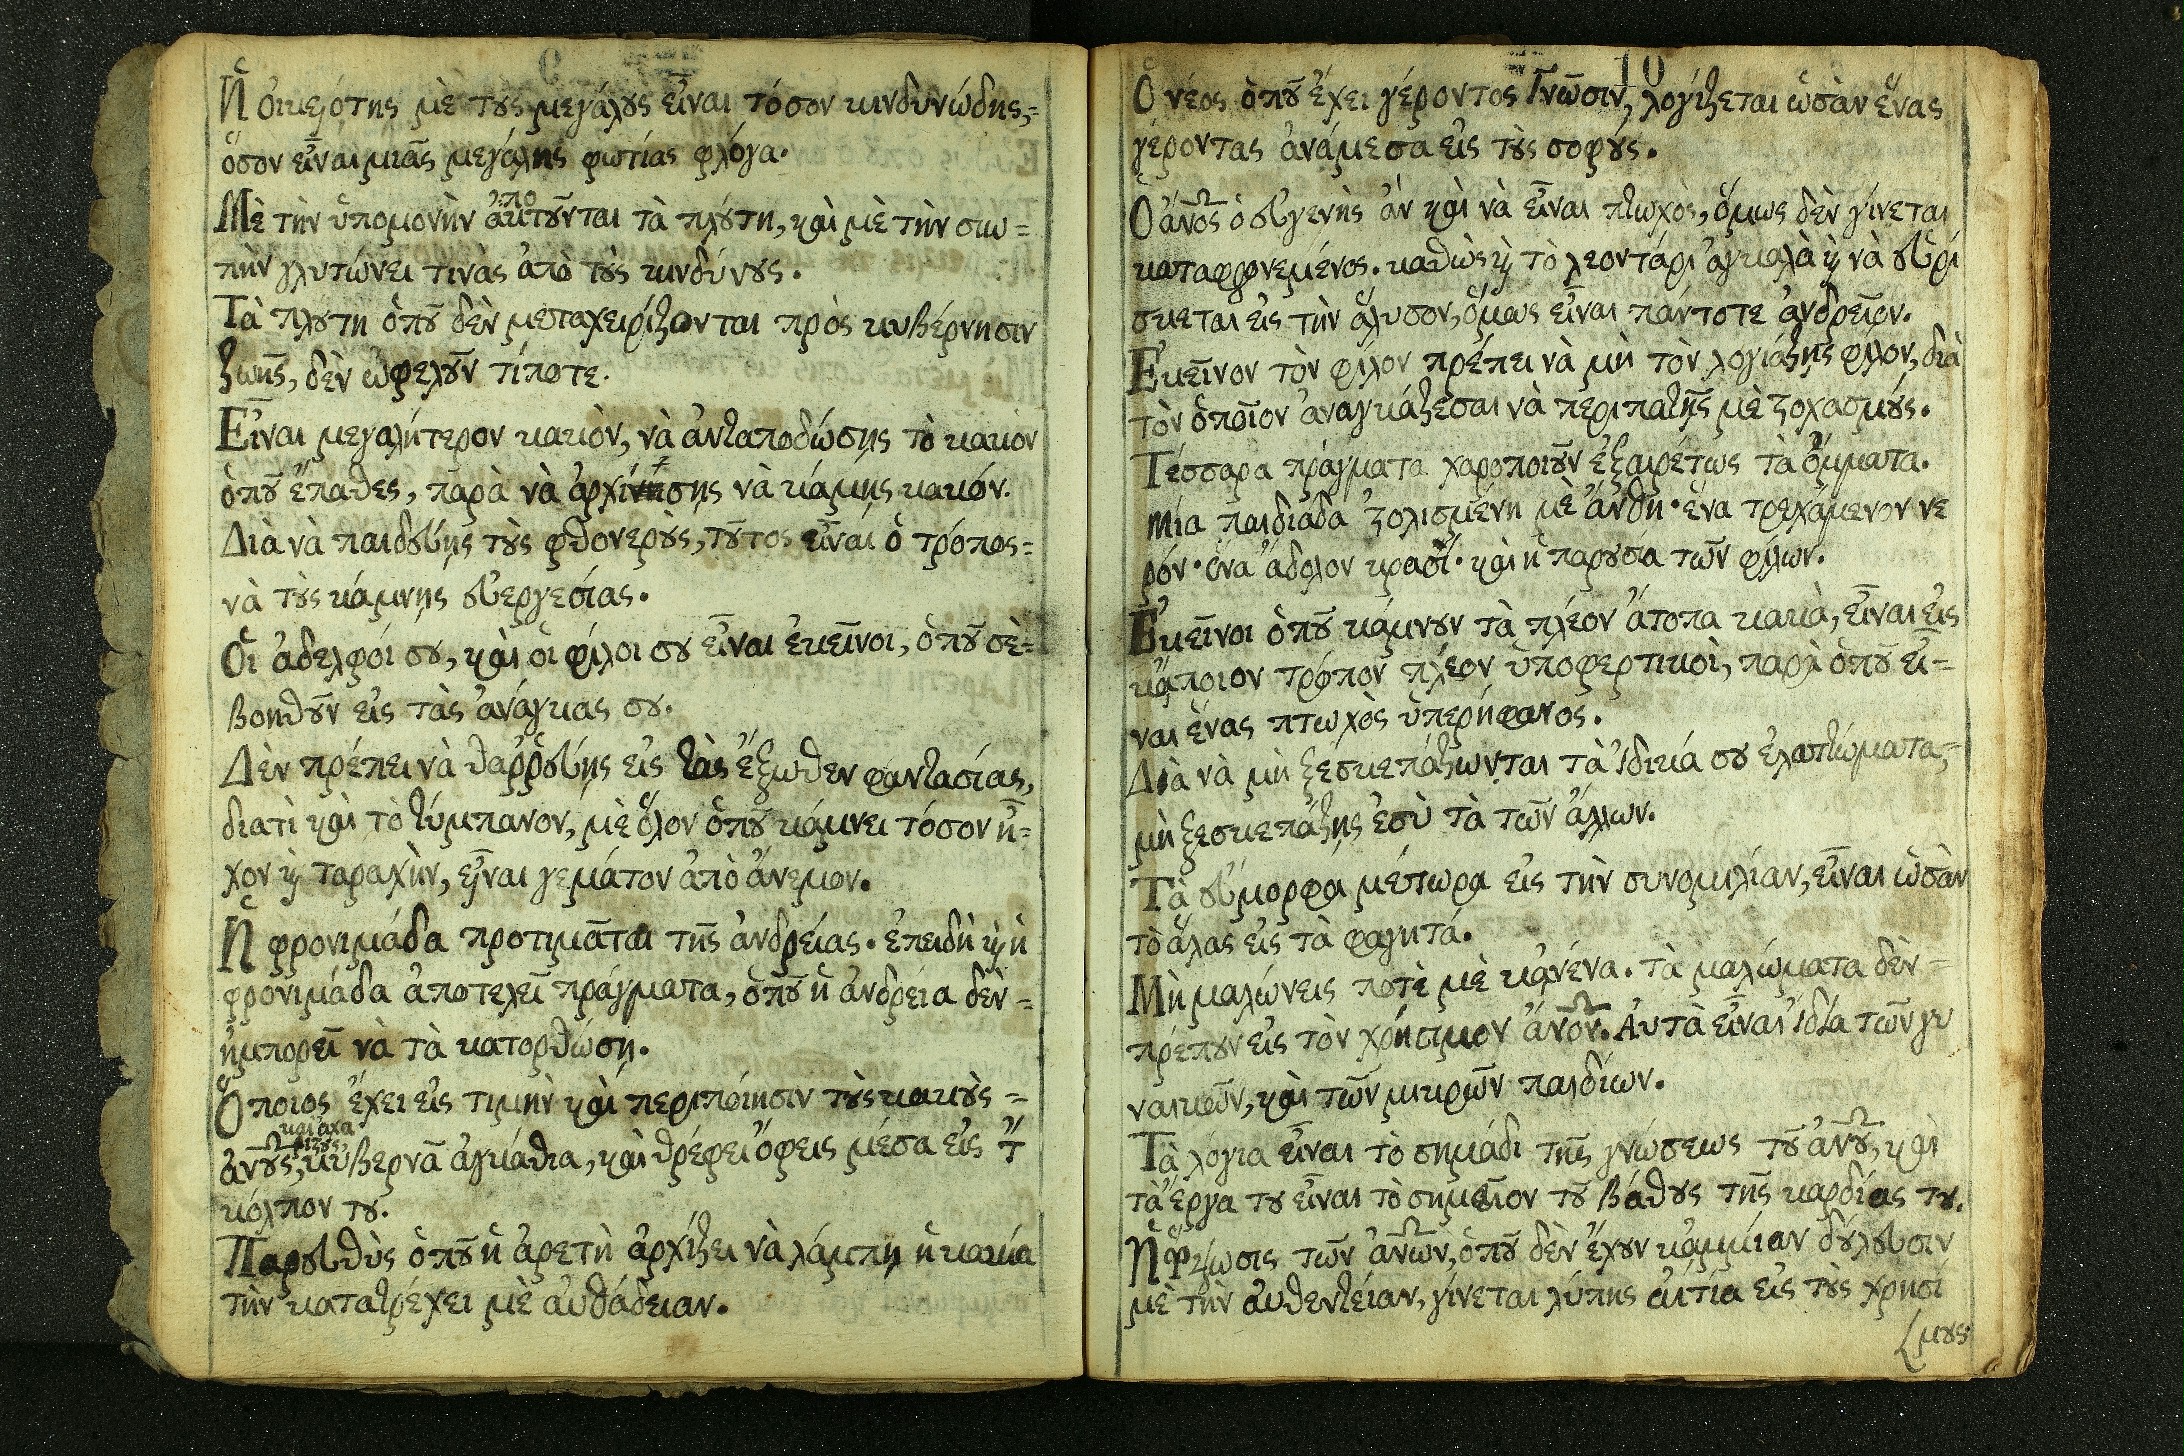 Ἡ οἰκειότης μὲ τοὺς μεγάλους εἶναι τόσον κινδυνώδης,=
ὅσον εἶναι μιᾶς μεγάλης φωτίας φλόγα.
Μὲ τὴν ὑπομονὴν ἀποκτοῦνται τὰ πλούτη, καὶ μὲ τὴν σιω=
πὴν γλυτώνει τινὰς ἀπὸ τοὺς κινδύνους.
Τὰ πλούτη ὁποῦ δὲν μεταχειρίζονται πρὸς κυβέρνησιν
ζωῆς, δὲν ὠφελοῦν τίποτε.
Εἶναι μεγαλήτερον κακὸν, νὰ ἀνταποδώσῃς τὸ κακὸν
ὁποῦ ἔπαθες, παρὰ νὰ ἀρχίσῃς νὰ κάμῃς κακόν.
Διὰ νὰ παιδεύῃς τοὺς φθονεροὺς, τοῦτος εἶναι ὁ τρόπος=
νὰ τοὺς κάμνῃς εὐεργεσίας.
Οἱ ἀδελφοί σου, καὶ οἱ φίλοι σου εἶναι ἐκεῖνοι, ὁποῦ σὲ=
βοηθοῦν εἰς τὰς ἀνάγκας σου.
Δὲν πρέπει νὰ θαῤῥεύῃς εἰς τὰς ἔξωθεν φαντασίας,
διατὶ καὶ τὸ τύμπανον, μὲ ὅλον ὁποῦ κάμνει τόσον ἦ=
χον κ̀ ταραχὴν, εἶναι γεμάτον ἀπὸ ἄνεμον.
Ἡ φρονιμάδα προτιμᾶται τῆς ἀνδρείας. ἐπειδὴ κ̀ ἡ
φρονιμάδα ἀποτελεῖ πράγματα, ὁποῦ ἡ ἀνδρεία δὲν=
ἠμπορεῖ νὰ τὰ κατορθώσῃ.
Ὅποιος ἔχει εἰς τιμὴν καὶ περιποίησιν τοὺς κακοὺς=
ἀν̅ους, κυβερνᾶ ἀγκάθια, καὶ θρέφει ὄφεις μέσα εἰς τ̅
κόλπον του.
Παρευθὺς ὁποῦ ἡ ἀρετὴ ἀρχίζει νὰ λάμπῃ ἡ κακία
τὴν κατατρέχει μὲ αὐθάδειαν.
10
Ὁ νέος ὁποῦ ἔχει γέροντος Γνῶσιν, λογίζεται ὡσὰν ἕνας
γέροντας ἀνάμεσα εἰς τοὺς σοφούς.
Ὁ ἄν̅ος ὁ εὐγενὴς ἂν καὶ νὰ εἶναι πτωχὸς, ὅμως δὲν γίνεται
καταφρονεμένος. καθὼς κ̀ τὸ λεοντάρι ἀγκαλὰ κ̀ νὰ εὑρί
σκεται εἰς τὴν ἅλυσον, ὅμως εἶναι πάντοτε ἀνδρεῖον.
Ἐκεῖνον τὸν φίλον πρέπει νὰ μὴ τὸν λογιάζῃς φίλον, διὰ
τὸν ὁποῖον ἀναγκάζεσαι νὰ περιπατῇς μὲ στοχασμούς.
Τέσσαρα πράγματα χαροποιοῦν ἐξαιρέτως τὰ ὄμματα.
μία παιδιάδα στολισμένη μὲ ἄνθη. ἕνα τρεχάμενον νε
ρόν. ἕνα ἄδολον κρασί. καὶ ἡ παρουσία τῶν φίλων.
Ἐκεῖνοι ὁποῦ κάμνουν τὰ πλέον ἄτοπα κακὰ, εἶναι εἰς
κάποιον τρόπον πλέον ὑποφερτικοὶ, παρὰ ὁποῦ εἶ=
ναι ἕνας πτωχὸς ὑπερήφανος.
Διὰ νὰ μὴ ξεσκεπάζωνται τὰ ἰδικά σου ἐλαττώματα,=
μὴ ξεσκεπάζῃς ἐσὺ τὰ τῶν ἄλλων.
Τὰ εὔμορφα μέτωρα εἰς τὴν συνομιλίαν, εἶναι ὡσὰν
τὸ ἅλας εἰς τὰ φαγητά.
Μὴ μαλώνεις ποτὲ μὲ κανένα. τὰ μαλώματα δὲν=
πρέπουν εἰς τὸν χρήσιμον ἄν̅ον. Αὐτὰ εἶναι ἴδια τῶν γυ
ναικῶν, καὶ τῶν μικρῶν παιδίων.
Τὰ λόγια εἶναι τὸ σημάδι τῆς γνώσεως τοῦ ἀν̅ου, καὶ
τὰ ἔργα του εἶναι τὸ σημεῖον τοῦ βάθους τῆς καρδίας του.
Ἡ ὕψωσις τῶν ἀν̅ων, ὁποῦ δὲν ἔχουν κᾀμμίαν δούλευσιν
μὲ τὴν αὐθεντείαν, γίνεται λύπης αἰτία εἰς τοὺς χρησί
μους.